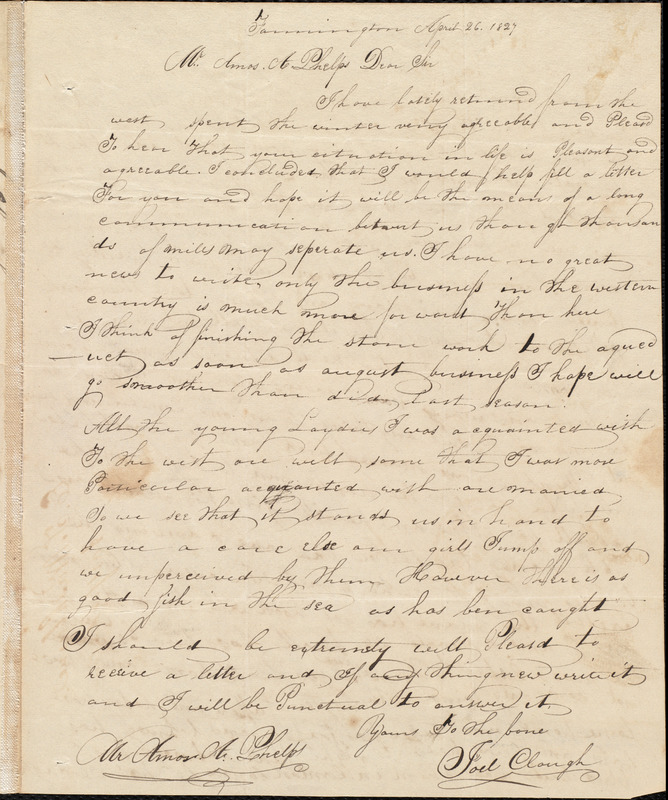 Farmington April 26. 1827
Mr. Amos. A Phelps Dear Sir
I have lately returnd from the
west spent the winter very agreeable and Pleasd
To hear That your situation in life is Pleasant and
agreeable. I concluded that I would help fill a letter
For you and hope it will be the means of a long
communication betwixt us though thousan
ds of miles may seperate us. I have no great
news to write, only the business in the western
country is much more forward Than here
I think of finishing the stone work to the aqued
uct as soon as august business I hope will
go smoother than did last season.
All the young Laydies I was acquainted with
To the west are well some that I was more
Particular acquainted with are married
So we see that it stands us in hand to
have a care else our girls Jump off and
we unperceived by them However There is as
good fish in the sea as has ben caught
I should be extremely well Pleasd to
receive a letter and If any thing new write it
and I will be Punctual to answer it.
Yours To the bone
Mr Amos. A. Phelps Joel Clough